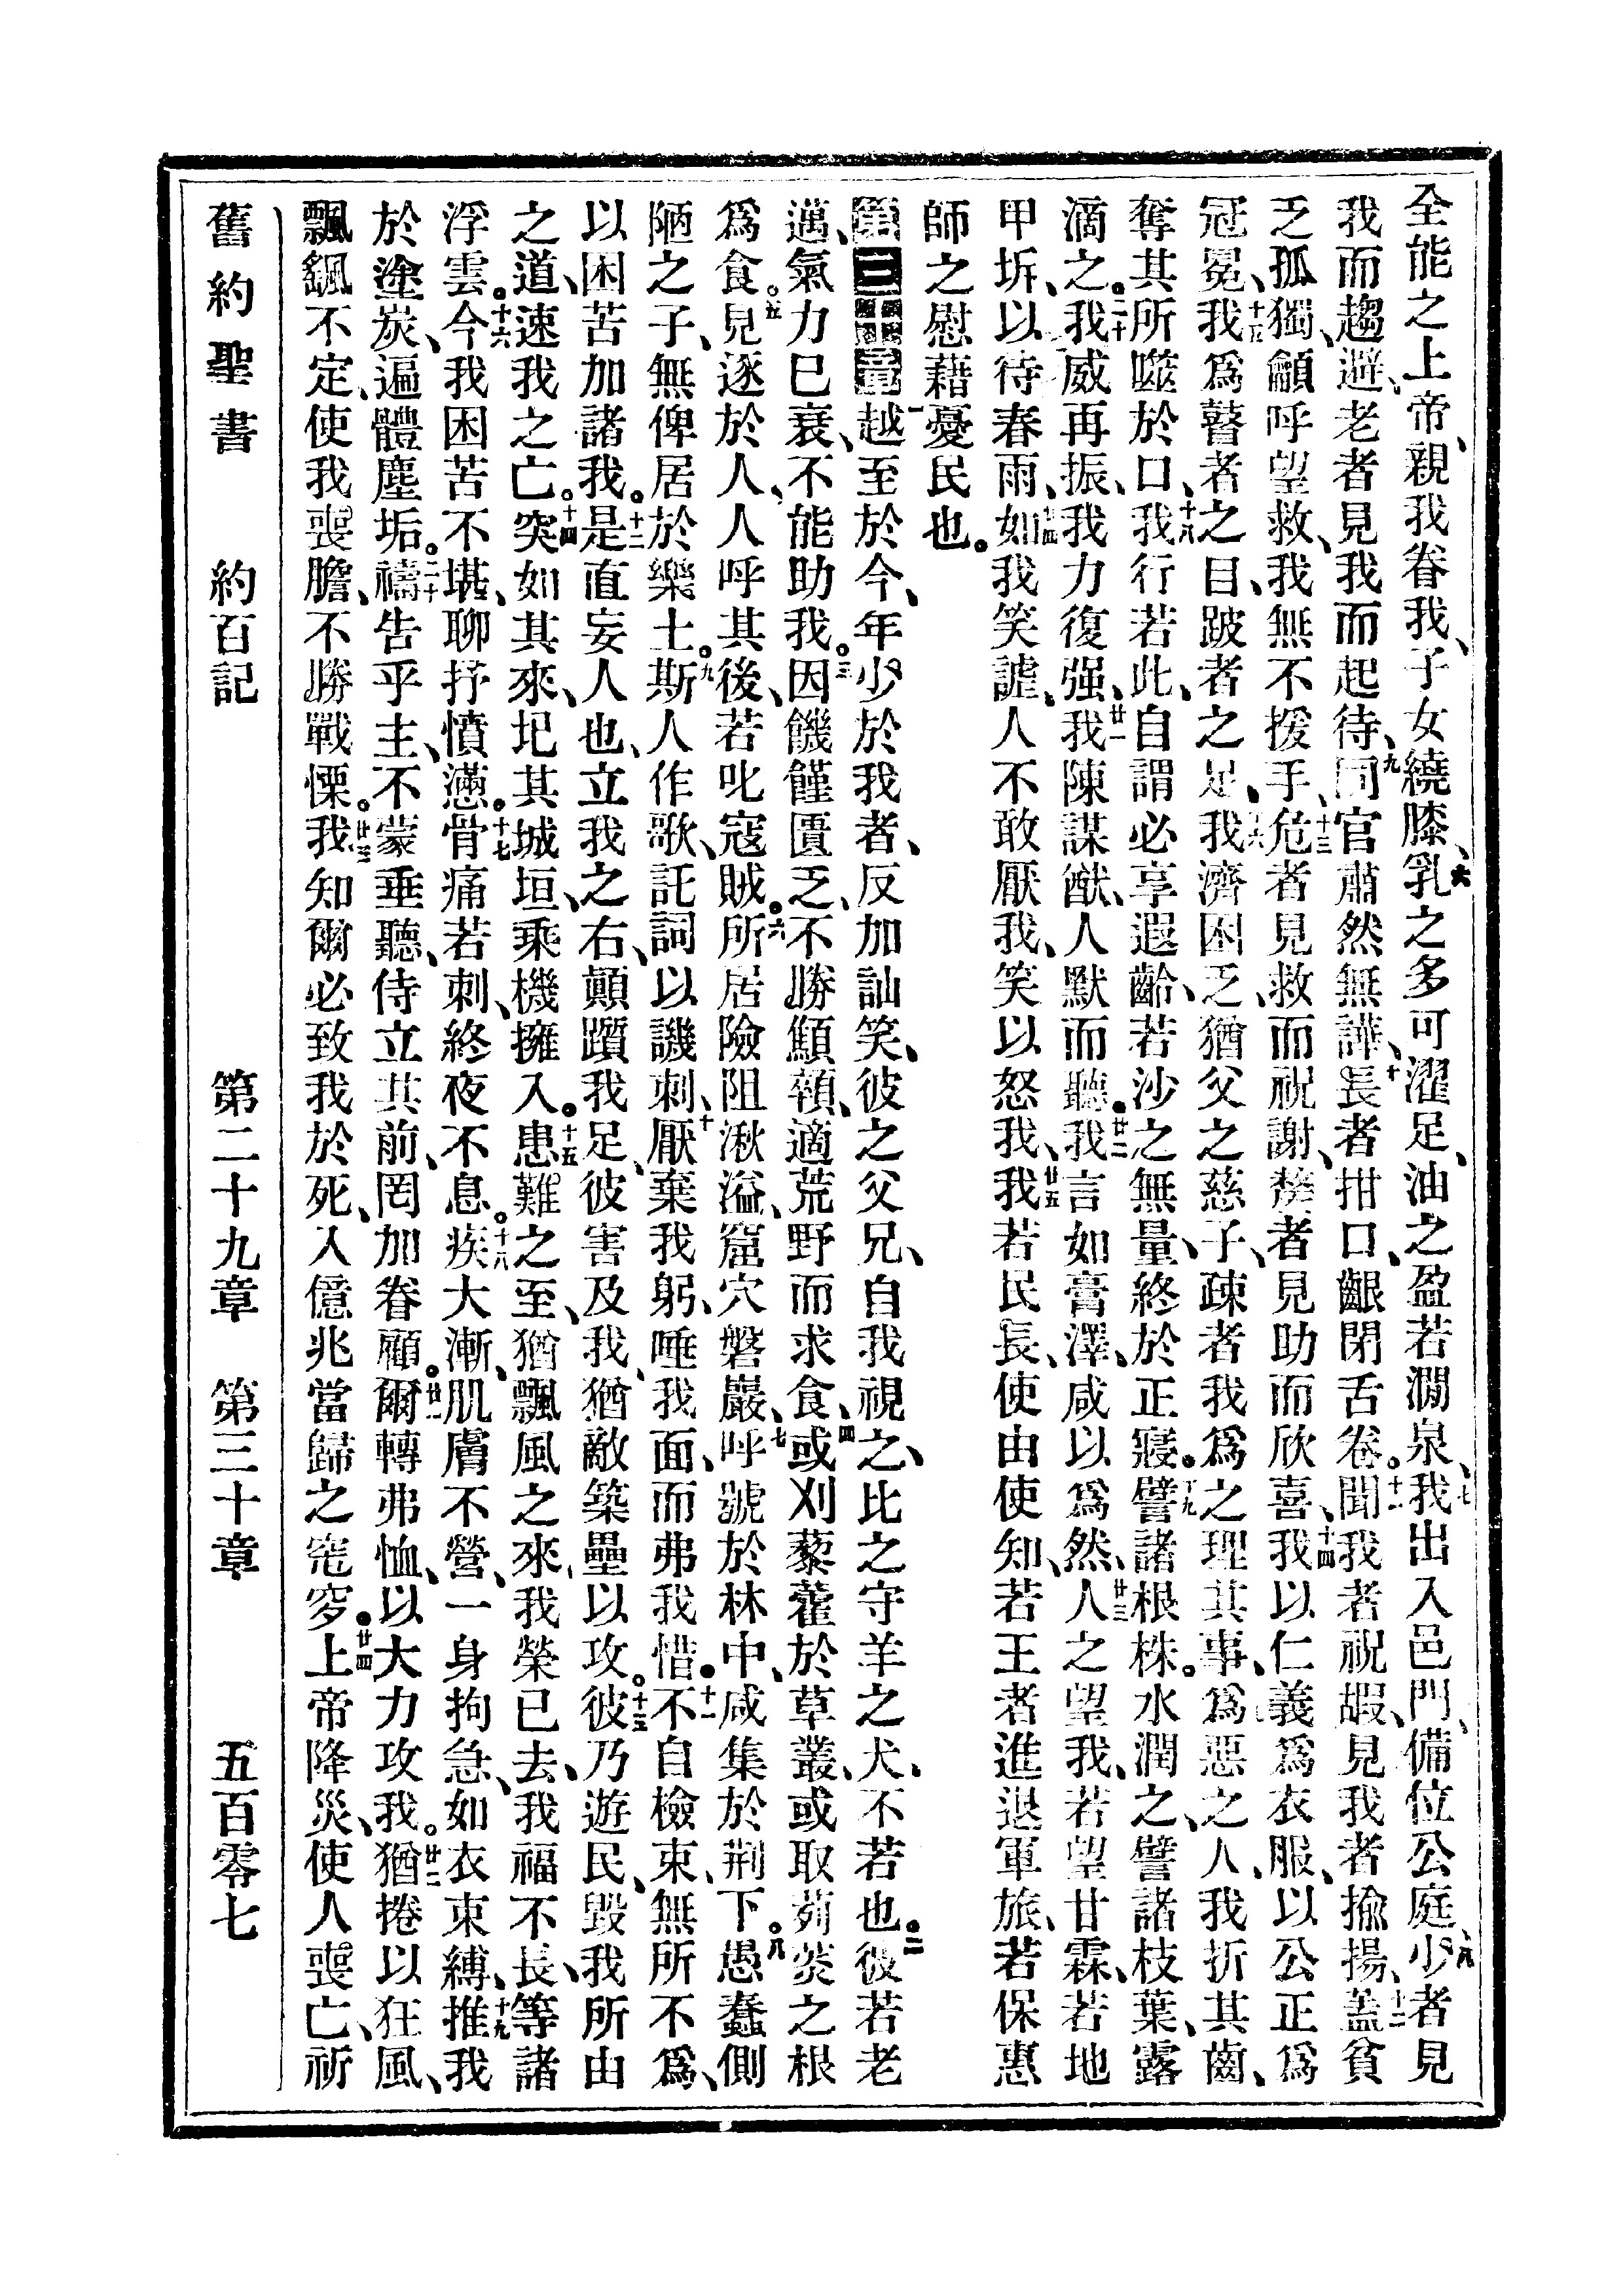 全能之上帝、親我眷我、子女繞膝、六乳之多可濯足、油之盈若澗泉、七我出入邑門、備位公庭、八少者見
我而趨避、老者見我而起待、九同官肅然無譁、十長者拑口、齦閉舌卷。十一聞我者祝嘏、見我者揄揚、十二蓋貧
乏孤獨、籲呼望救、我無不援手、十三危者見救而祝謝、嫠者見助而欣喜、十四我以仁義爲衣服、以公正爲
冠冕、十五我爲瞽者之目、跛者之足、十六我濟困乏、猶父之慈子、疎者我爲之理其事、爲惡之人、我折其齒、
奪其所噬於口、十八我行若此、自謂必享遐齡、若沙之無量、終於正寢。十九譬諸根株。水潤之、譬諸枝葉、露
滴之。二十我威再振、我力復强、廿一我陳謀猷、人默而聽。廿二我言如膏澤、咸以爲然、廿三人之望我、若望甘霖、若地
甲坼、以待春雨、廿四如我笑謔、人不敢厭我、笑以怒我、廿五我若民長、使由使知、若王者進退軍旅、若保惠
師之慰藉憂民也。
第三十章一越至於今、年少於我者、反加訕笑、彼之父兄、自我視之、比之守羊之犬、不若也。二彼若老
邁、氣力已衰、不能助我。三因饑饉匱乏、不勝顑頷、適荒野而求食、四或刈藜藿於草叢、或取茢莢之根
爲食。五見逐於人、人呼其後、若叱寇賊。六所居險阻湫溢、窟穴磐巖、七呼號於林中、咸集於荆下。八愚蠢側
陋之子、無俾居於樂土。九斯人作歌、託詞以譏刺、十厭棄我躬、唾我面、而弗我惜。十一不自檢束、無所不爲、
以困苦加諸我。十二是直妄人也、立我之右、顚躓我足、彼害及我、猶敵築壘以攻。十三彼乃遊民、毀我所由
之道、速我之亡。十四突如其來、圯其城垣、乘機擁入。十五患難之至、猶飄風之來、我榮已去、我福不長、等諸
浮雲。十六今我困苦不堪、聊抒憤懣。十七骨痛若刺、終夜不息。十八疾大漸、肌膚不營、一身拘急、如衣束縛、十九推我
於塗炭、遍體塵垢。二十禱告乎主、不蒙垂聽、侍立其前、罔加眷顧。廿一爾轉弗恤、以大力攻我。廿二猶捲以狂風、
飄颻不定、使我喪膽、不勝戰慄。廿三我知爾必致我於死、入億兆當歸之窀穸。廿四上帝降災、使人喪亡、祈
舊約聖書 約百記 第二十九章 第三十章 五百零七